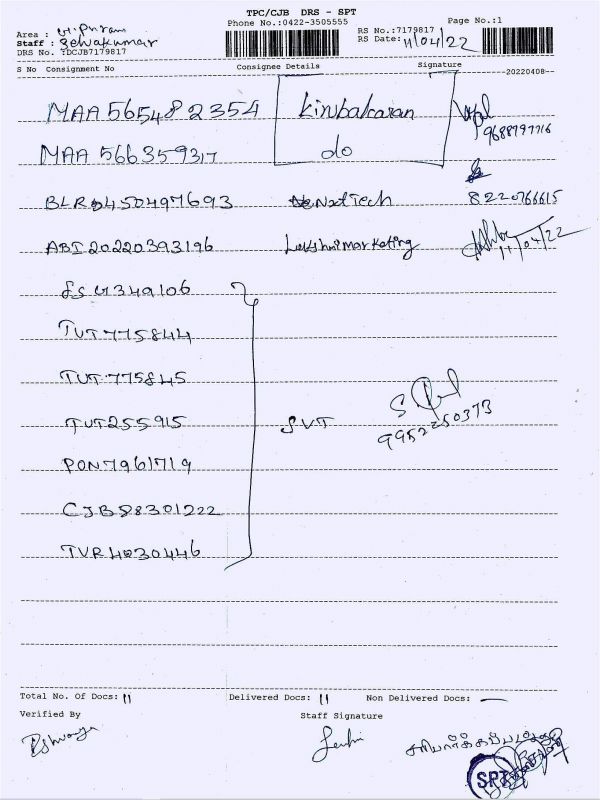 TPC/CJB DRS - SPT
Phone No.:0422-3505555
Page No.:1
Area : G.Puram
Staff : Selvakumar
DRS No. :DCJB7179817
RS No.:7179817
RS Date: 11/04/22
S No Consignment No Consignee Details Signature
20220408
MAA 565482354 Kirubakaran
9688797716
MAA 566359317 do
BLR 450497693 NextTech 8220766615
ABI 20220393196 Lakshmi marketing 11/04/22
349106
TUT 775844
TUT 775845
TUT 255915 SVT 9952250373
PON 7961719
CJB 58301222
TVR 4030446
Total No. Of Docs: 11 Delivered Docs: 11 Non Delivered Docs: —
Verified By Staff Signature
SPT